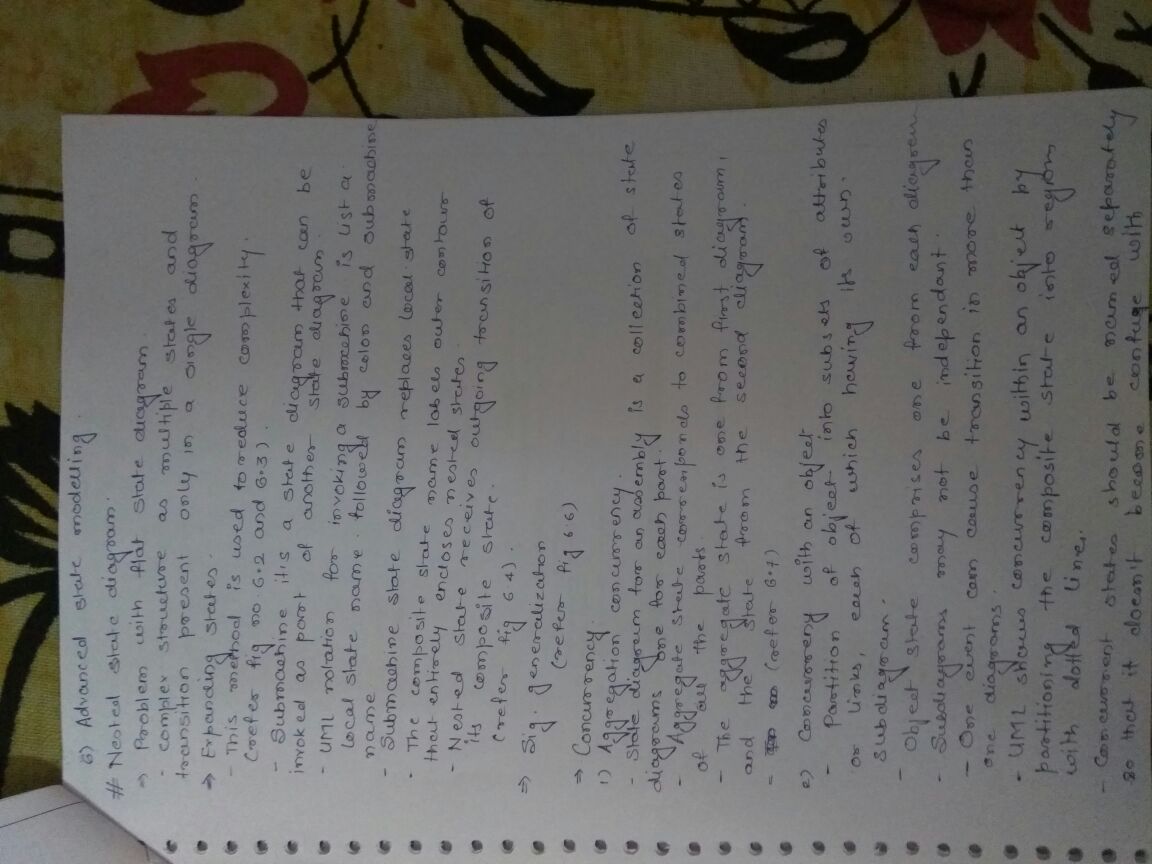 6) Advanced state modelling.
# Nested state diagram.
⇒ Problem with flat state diagram.
- complex structure as multiple states and
transition present only in a single diagram.
⇒ Expanding states.
- This method is used to reduce complexity.
(refer fig no. 6.2 and 6.3).
- Submachine it is a state diagram that can be
invoked as part of another state diagram.
- UML notation for invoking a submachine is list a
local state name followed by colon and submachine
name
- Submachine state diagram replaces local state
- The composite state name labels outer contour
that entirely encloses nested states.
- Nested state receives outgoing transition of
its composite state.
(refer fig 6.4).
⇒ Sig. generalization
(refer fig 6.6)
⇒ Concurrency.
1) Aggregation concurrency.
- State diagram for an assembly is a collection of state
diagrams one for each part.
- Aggregate state corresponds to combined states
of all the parts.
- The aggregate state is one from first diagram,
and the state from the second diagram.
- (refer 6.7)
2) Concurrency with an object
- Partition of object into subsets of attributes
or links, each of which having its own.
subdiagram.
- Object state comprises one from each diagram
- Subdiagrams may not be independant.
- One event can cause transition in more than
one diagrams.
- UML shows concurrency within an object by
partitioning the composite state into region
with dotted line.
- Concurrent states should be named separately
so that it doesnt become confuse with